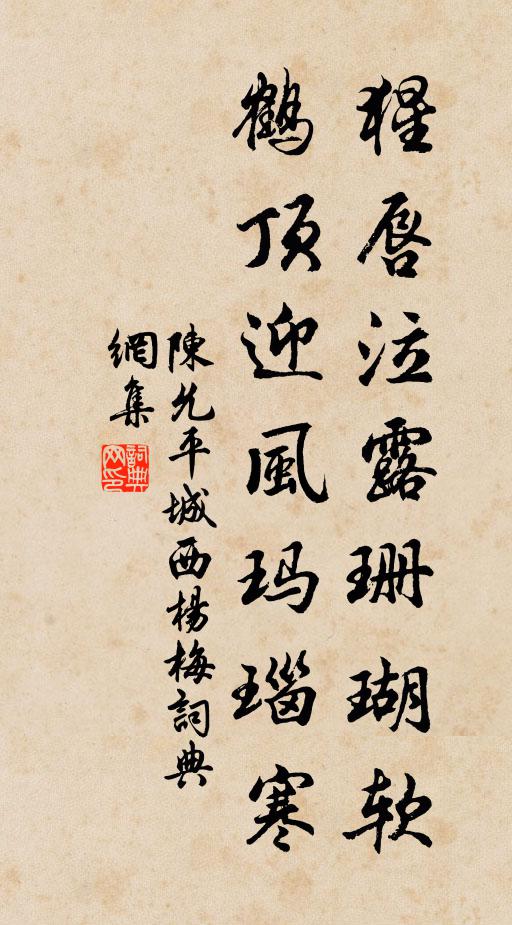 猩唇泣露珊瑚软
鶴頂迎風玛瑙寒
陳允平城西楊梅詞典
網集
詞典
网印